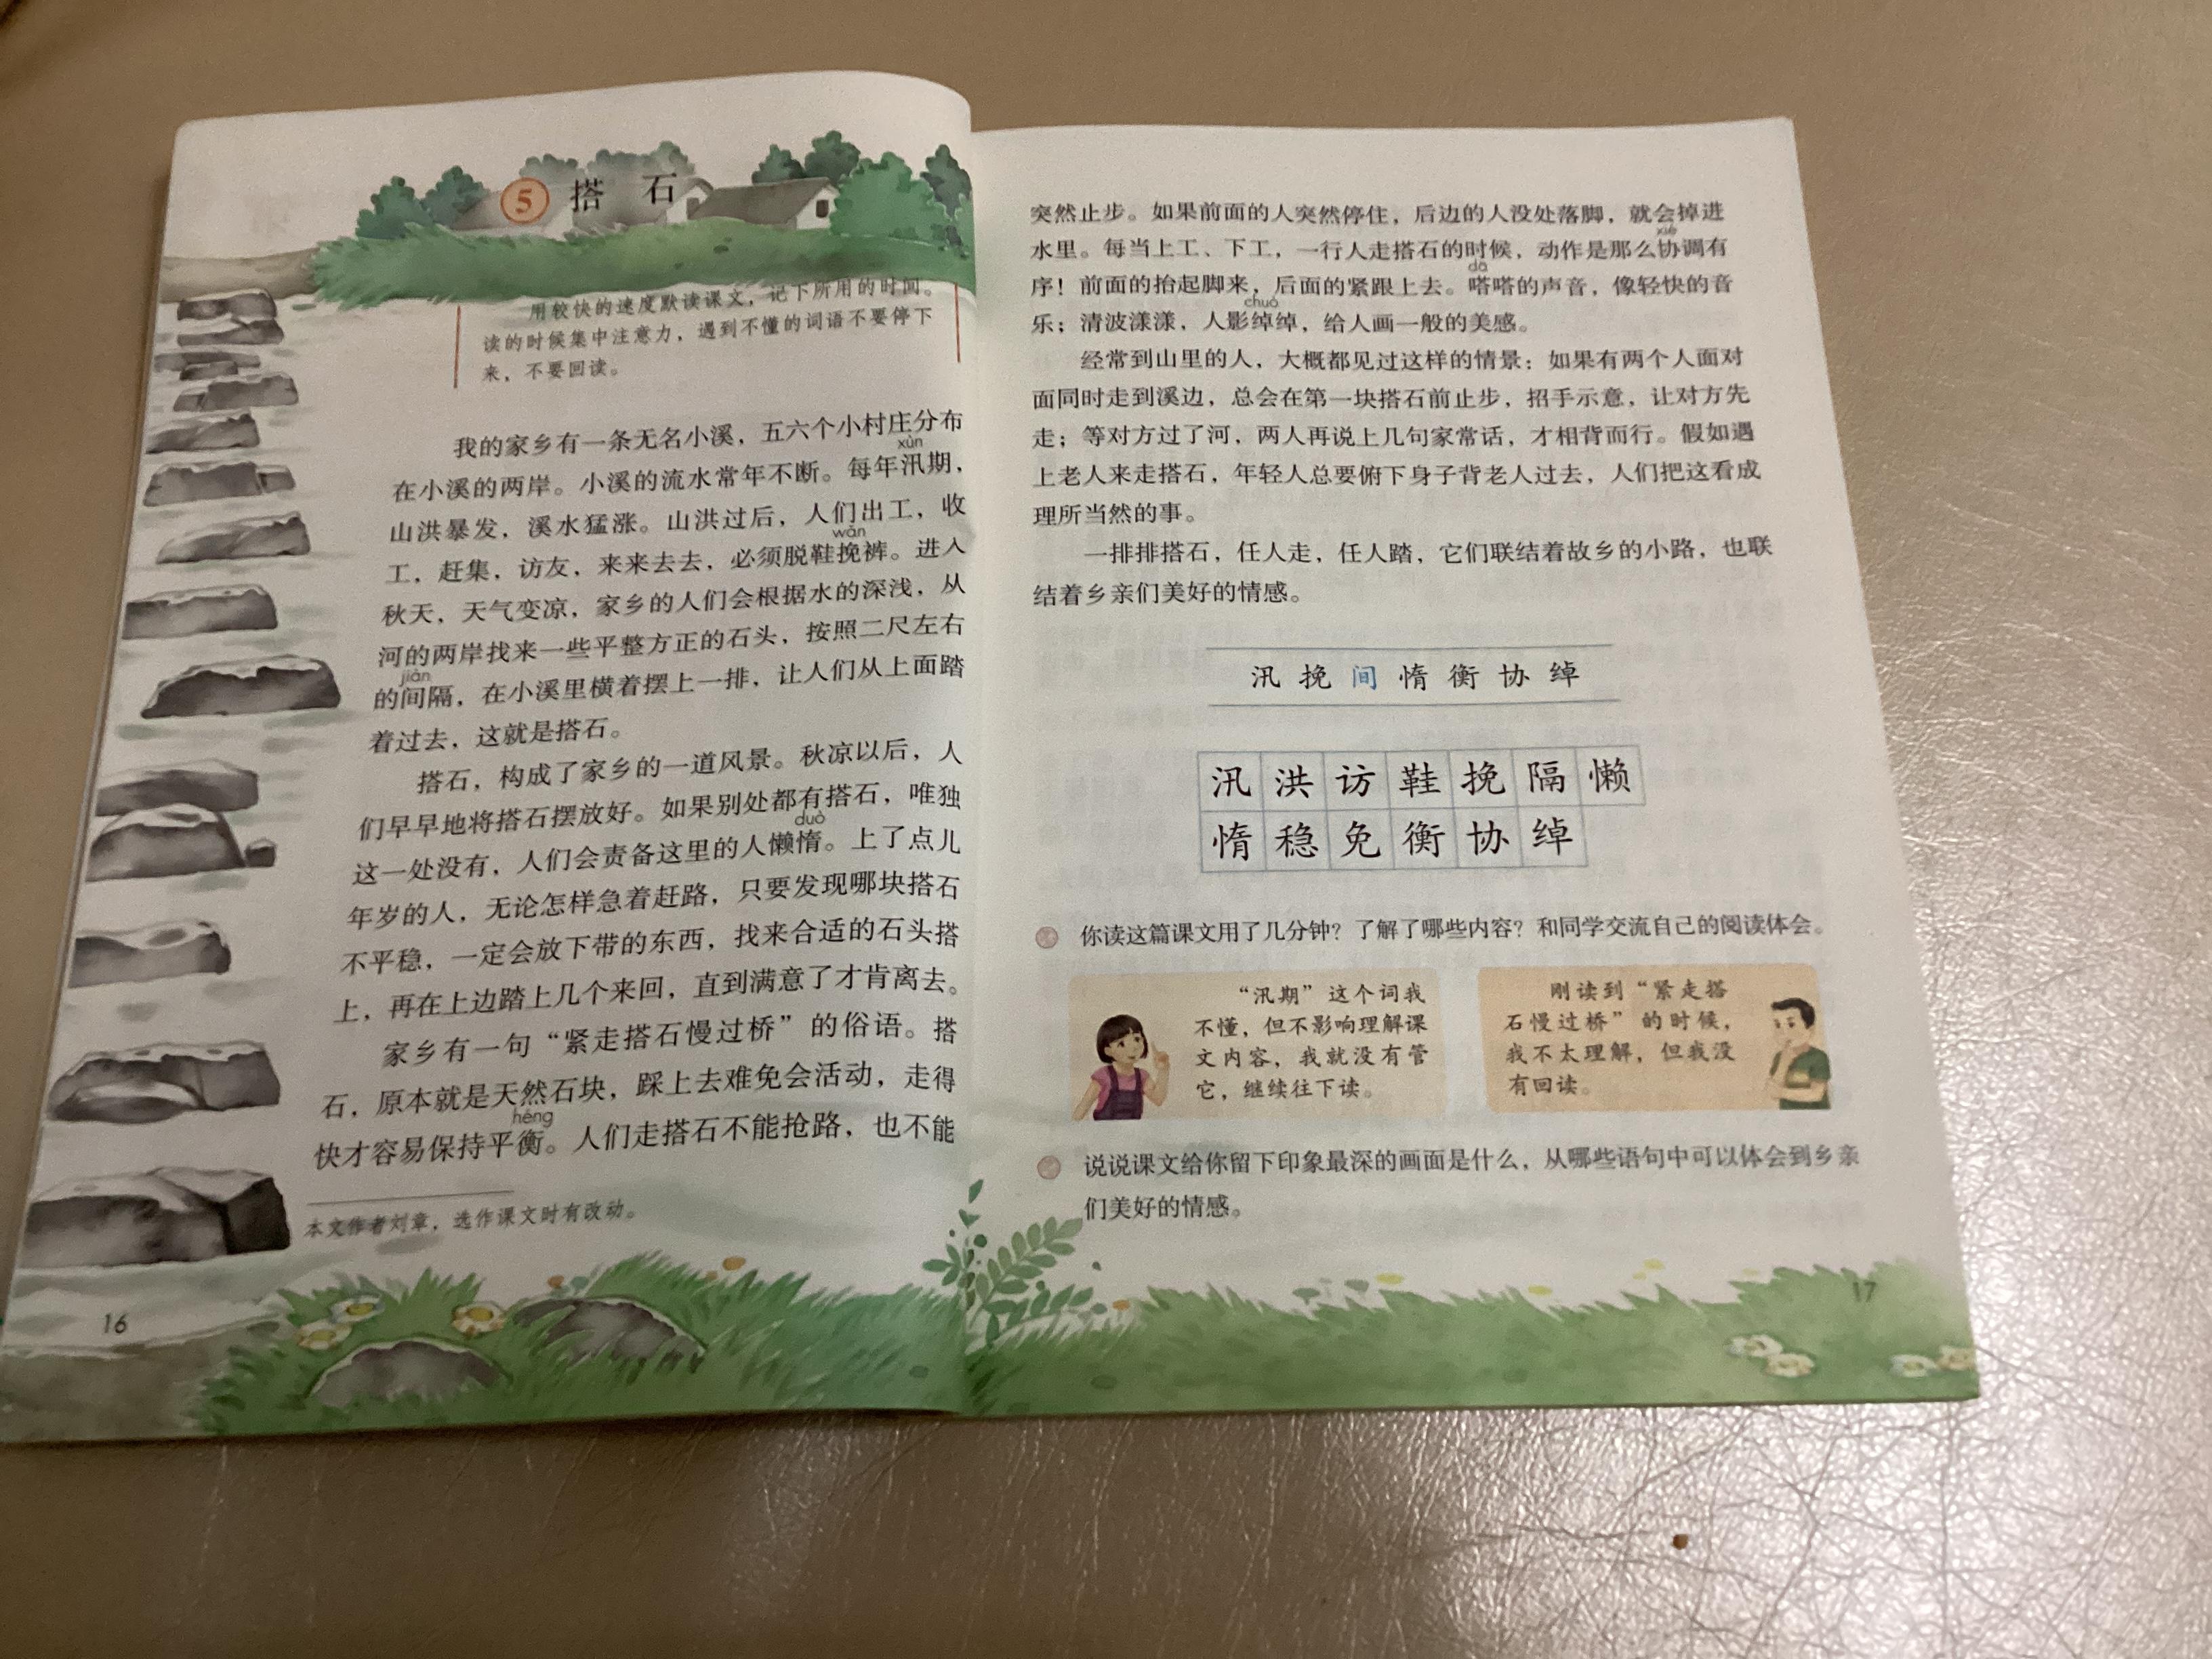 5 搭 石
用较快的速度默读课文，记下所用的时间。
读的时候集中注意力，遇到不懂的词语不要停下
来，不要回读。
我的家乡有一条无名小溪，五六个小村庄分布
xùn
在小溪的两岸。小溪的流水常年不断。每年汛期，
山洪暴发，溪水猛涨。山洪过后，人们出工，收
wǎn
工，赶集，访友，来来去去，必须脱鞋挽裤。进入
秋天，天气变凉，家乡的人们会根据水的深浅，从
河的两岸找来一些平整方正的石头，按照二尺左右
jiàn
的间隔，在小溪里横着摆上一排，让人们从上面踏
着过去，这就是搭石。
搭石，构成了家乡的一道风景。秋凉以后，人
们早早地将搭石摆放好。如果别处都有搭石，唯独
duò
这一处没有，人们会责备这里的人懒惰。上了点儿
年岁的人，无论怎样急着赶路，只要发现哪块搭石
不平稳，一定会放下带的东西，找来合适的石头搭
上，再在上边踏上几个来回，直到满意了才肯离去。
家乡有一句“紧走搭石慢过桥”的俗语。搭
石，原本就是天然石块，踩上去难免会活动，走得
héng
快才容易保持平衡。人们走搭石不能抢路，也不能
本文作者刘章，选作课文时有改动。
16
突然止步。如果前面的人突然停住，后边的人没处落脚，就会掉进
xié
水里。每当上工、下工，一行人走搭石的时候，动作是那么协调有
dā
序！前面的抬起脚来，后面的紧跟上去。嗒嗒的声音，像轻快的音
chuò
乐；清波漾漾，人影绰绰，给人画一般的美感。
经常到山里的人，大概都见过这样的情景：如果有两个人面对
面同时走到溪边，总会在第一块搭石前止步，招手示意，让对方先
走；等对方过了河，两人再说上几句家常话，才相背而行。假如遇
上老人来走搭石，年轻人总要俯下身子背老人过去，人们把这看成
理所当然的事。
一排排搭石，任人走，任人踏，它们联结着故乡的小路，也联
结着乡亲们美好的情感。
汛 挽 间 惰 衡 协 绰
汛 洪 访 鞋 挽 隔 懒
惰 稳 免 衡 协 绰
你读这篇课文用了几分钟？了解了哪些内容？和同学交流自己的阅读体会。
“汛期”这个词我
不懂，但不影响理解课
文内容，我就没有管
它，继续往下读。
刚读到“紧走搭
石慢过桥”的时候，
我不太理解，但我没
有回读。
说说课文给你留下印象最深的画面是什么，从哪些语句中可以体会到乡亲
们美好的情感。
17